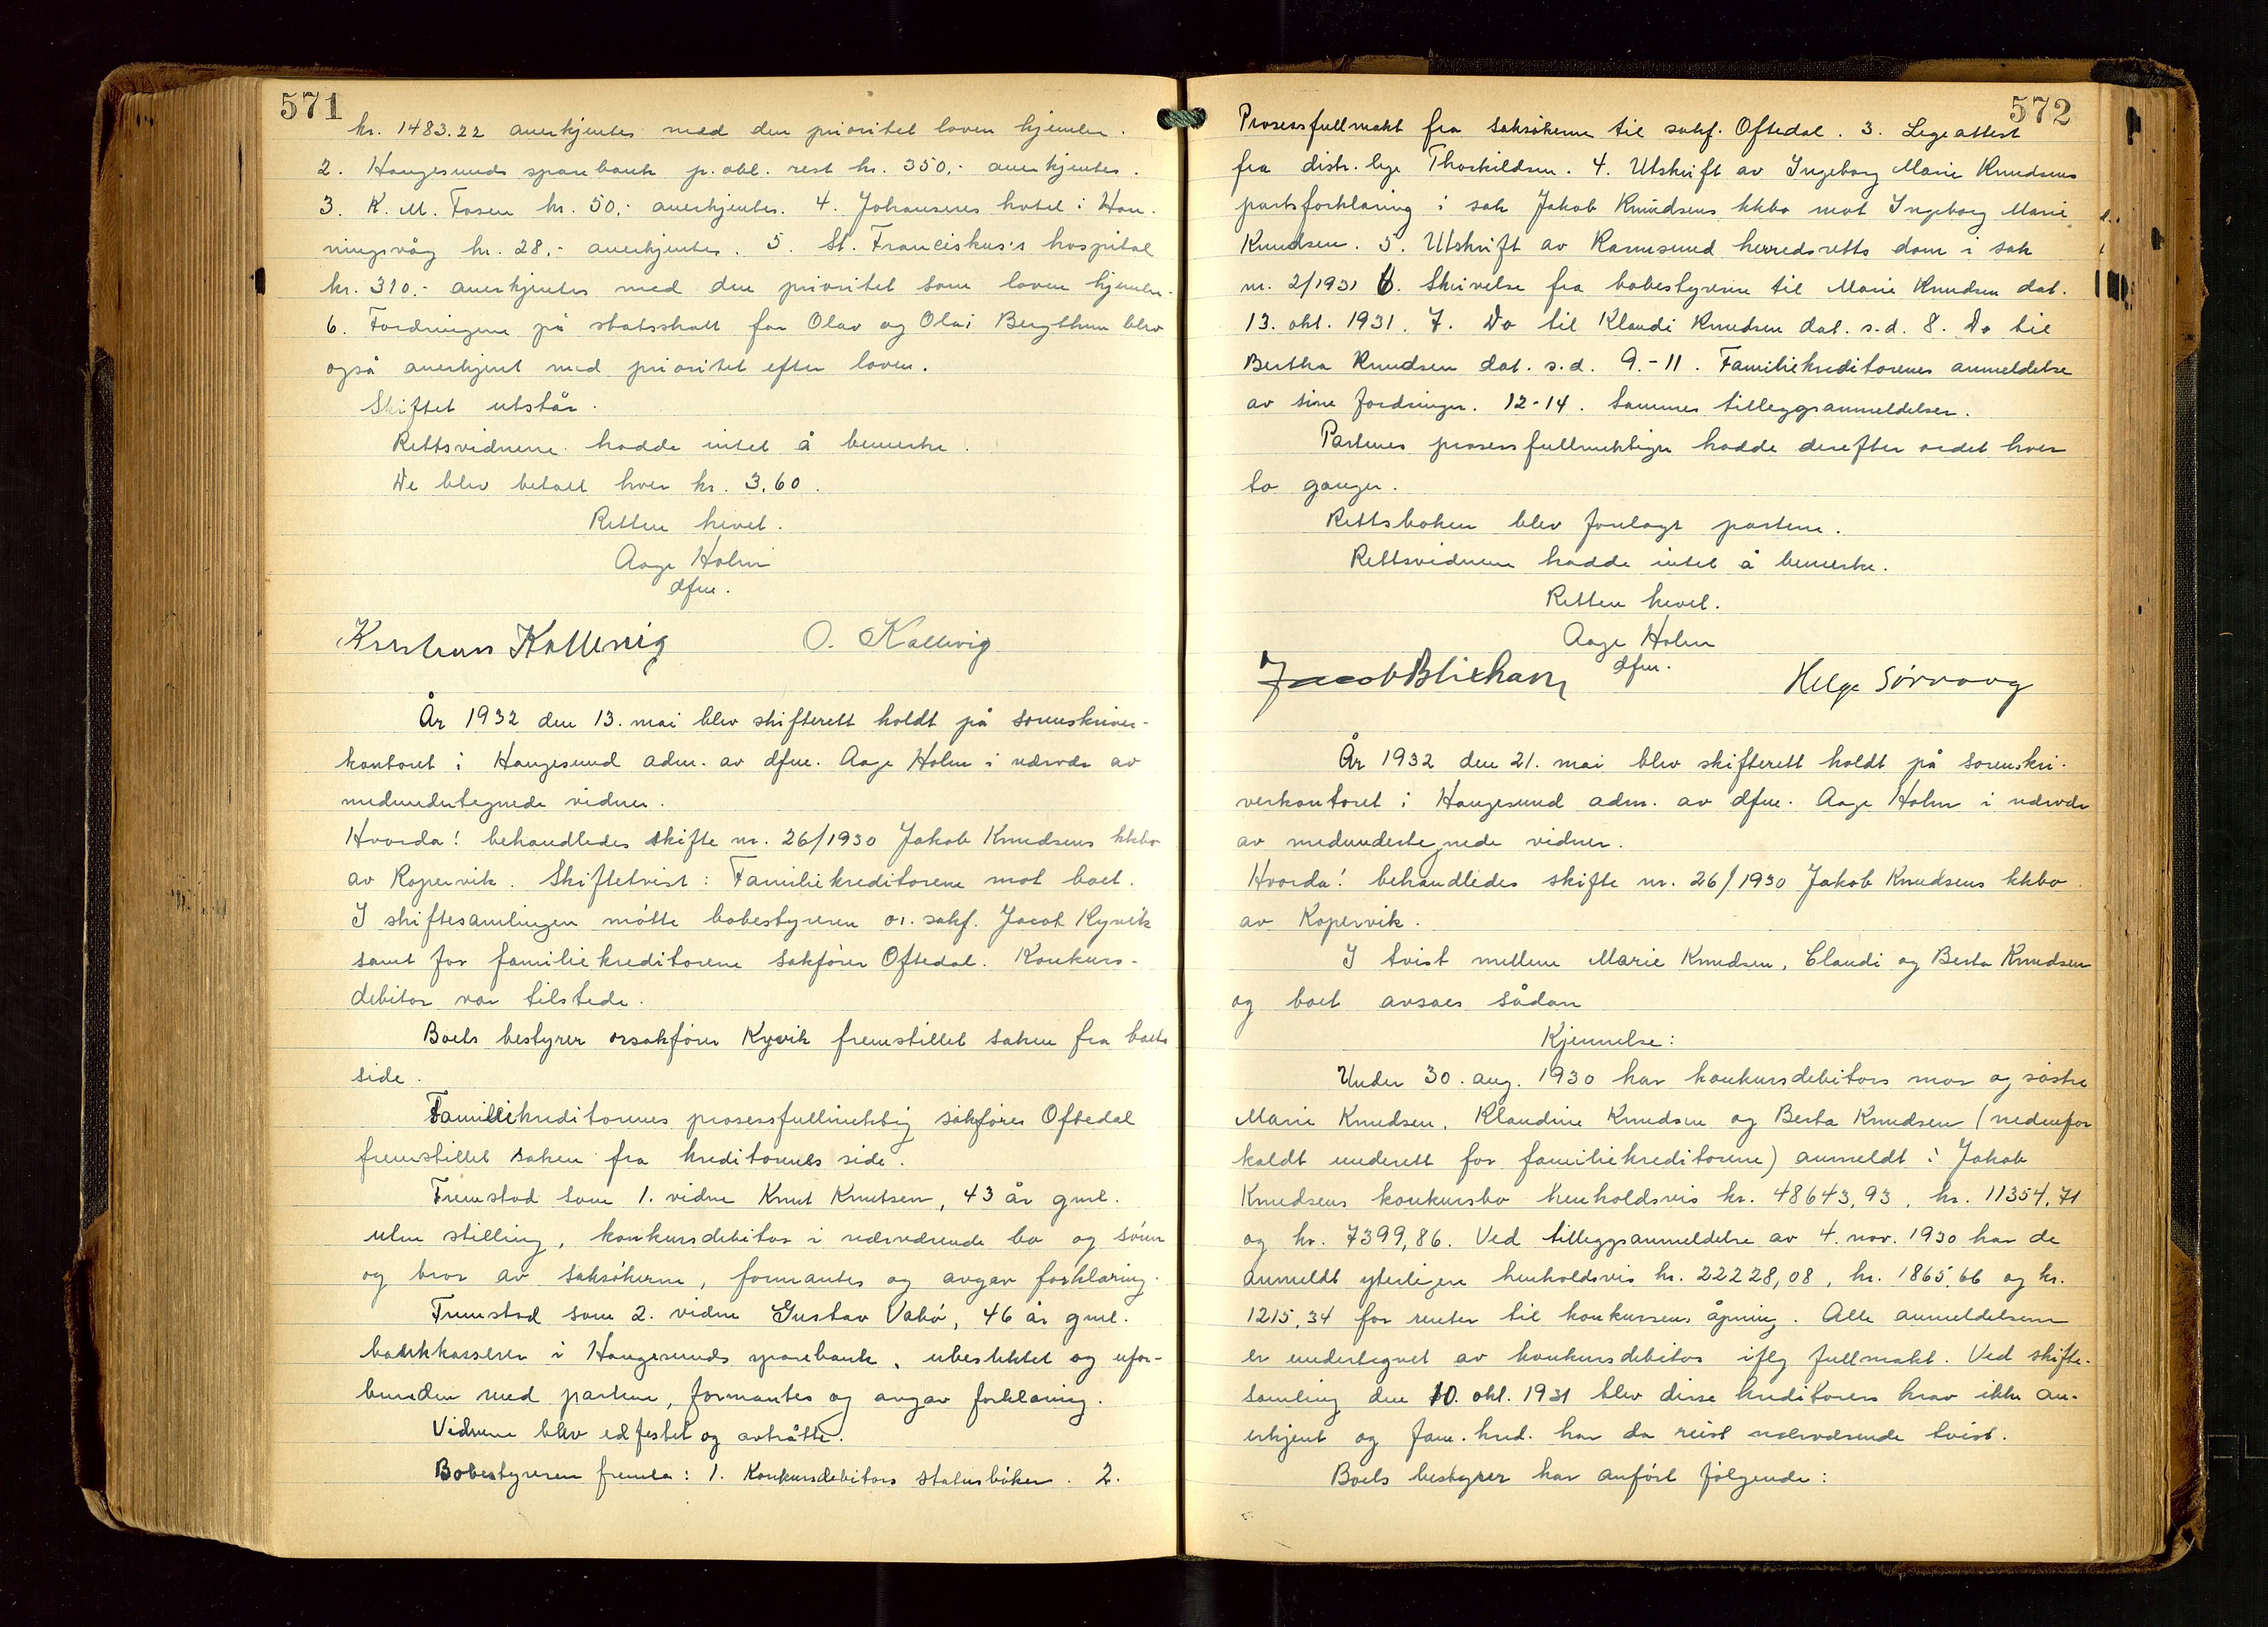 571
kr. 1483.22 anerkjentes med den prioritet loven hjemler.
2. Haugesunds sparebank p. obl. rest kr. 350,- anerkjentes.
3. K. M. Fosen kr. 50,- anerkjentes. 4. Johansens hotel i Hon-
ningsvåg kr. 28,- anerkjentes. 5. St. Franciskus's hospital
kr. 310,- anerkjentes med den prioritet som loven hjemler.
6. Fordringene på statsskatt for Olav og Olai Bergthun blev
også anerkjent med prioritet efter loven.
Skiftet utstår.
Rettsvidnene hadde intet å bemerke.
De blev betalt hver kr. 3,60.
Retten hevet.
Aage Holm
dfm.
Kallevig O. Kallevig
År 1932 den 13. mai blev skifterett holdt på sorenskriver-
kontoret i Haugesund adm. av dfm. Aage Holm i nærvær av
medundertegnede vidner.
Hvorda! behandledes skifte nr. 26/1930 Jakob Knudsens kkbo
av Kopervik. Skiftetvist: Familiekreditorene mot boet.
I skiftesamlingen møtte bobestyreren o.r.sakf. Jacob Kyvik
samt for familiekreditorene sakfører Oftedal. Konkurs-
debitor var tilstede.
Boets bestyrer orsakfører Kyvik fremstillet saken fra boets
side.
Familiekreditorenes prosessfullmektig sakfører Oftedal
fremstillet saken fra kreditorenes side.
Fremstod som 1. vidne Knut Knutsen, 43 år gml.
uten stilling, konkursdebitor i nærværende bo og sønn
og bror av saksøkerne, formantes og avgav forklaring.
Fremstod som 2. vidne Gustav Vabø, 46 år gml.
bankkasserer i Haugesunds sparebank, ubeslektet og ufor-
bunden med partene, formantes og avgav forklaring.
Vidnene blev edfestet og avtråtte.
Bobestyreren fremla: 1. Konkursdebitors statusbøker. 2.
572
Prosessfullmakt fra saksøkerne til sakf. Oftedal. 3. Legeattest
fra distr. lege Thorkildsen. 4. Utskrift av Ingeborg Marie Knudsens
partsforklaring i sak Jakob Knudsens kkbo mot Ingeborg Marie
Knudsen. 5. Utskrift av Karmsund herredsretts dom i sak
nr. 2/1931 6. Skrivelse fra bobestyreren til Marie Knudsen dat.
13. okt. 1931. 7. Do til Klaudi Knudsen dat. s.d. 8. Do til
Bertha Knudsen dat. s.d. 9.-11. Familiekreditorenes anmeldelse
av sine fordringer. 12-14. Sammes tilleggsanmeldelser.
Partenes prosessfullmektiger hadde derefter ordet hver
to ganger.
Rettsboken blev forelagt partene.
Rettsvidnene hadde intet å bemerke.
Retten hevet.
Aage Holm
dfm.
Jacob Blixhavn Helge Sørvaag
År 1932 den 21. mai blev skifterett holdt på sorenskri-
verkontoret i Haugesund adm. av dfm. Aage Holm i nærvær
av medundertegnede vidner.
Hvorda! behandledes skifte nr. 26/1930 Jakob Knudsens kkbo
av Kopervik.
I tvist mellem Marie Knudsen, Claudi og Berta Knudsen
og boet avsaes sådan
Kjennelse:
Under 30. aug. 1930 har konkursdebitors mor og søstre
Marie Knudsen, Klaudine Knudsen og Berta Knudsen (nedenfor
kaldt underett for familiekreditorene) anmeldt i Jakob
Knudsens konkursbo henholdsvis kr. 48643,93, kr. 11354,71
og kr. 7399,86. Ved tilleggsanmeldelse av 4. nov. 1930 har de
anmeldt yterligere henholdsvis kr. 22228,08, kr. 1865,66 og kr.
1215,34 for renter til konkursens åpning. Alle anmeldelsene
er undertegnet av konkursdebitor iflg fullmakt. Ved skifte-
samling den 10. okt. 1931 blev disse kreditorers krav ikke an-
erkjent og fam. kred. har da reist nærværende tvist.
Boets bestyrer har anført følgende: